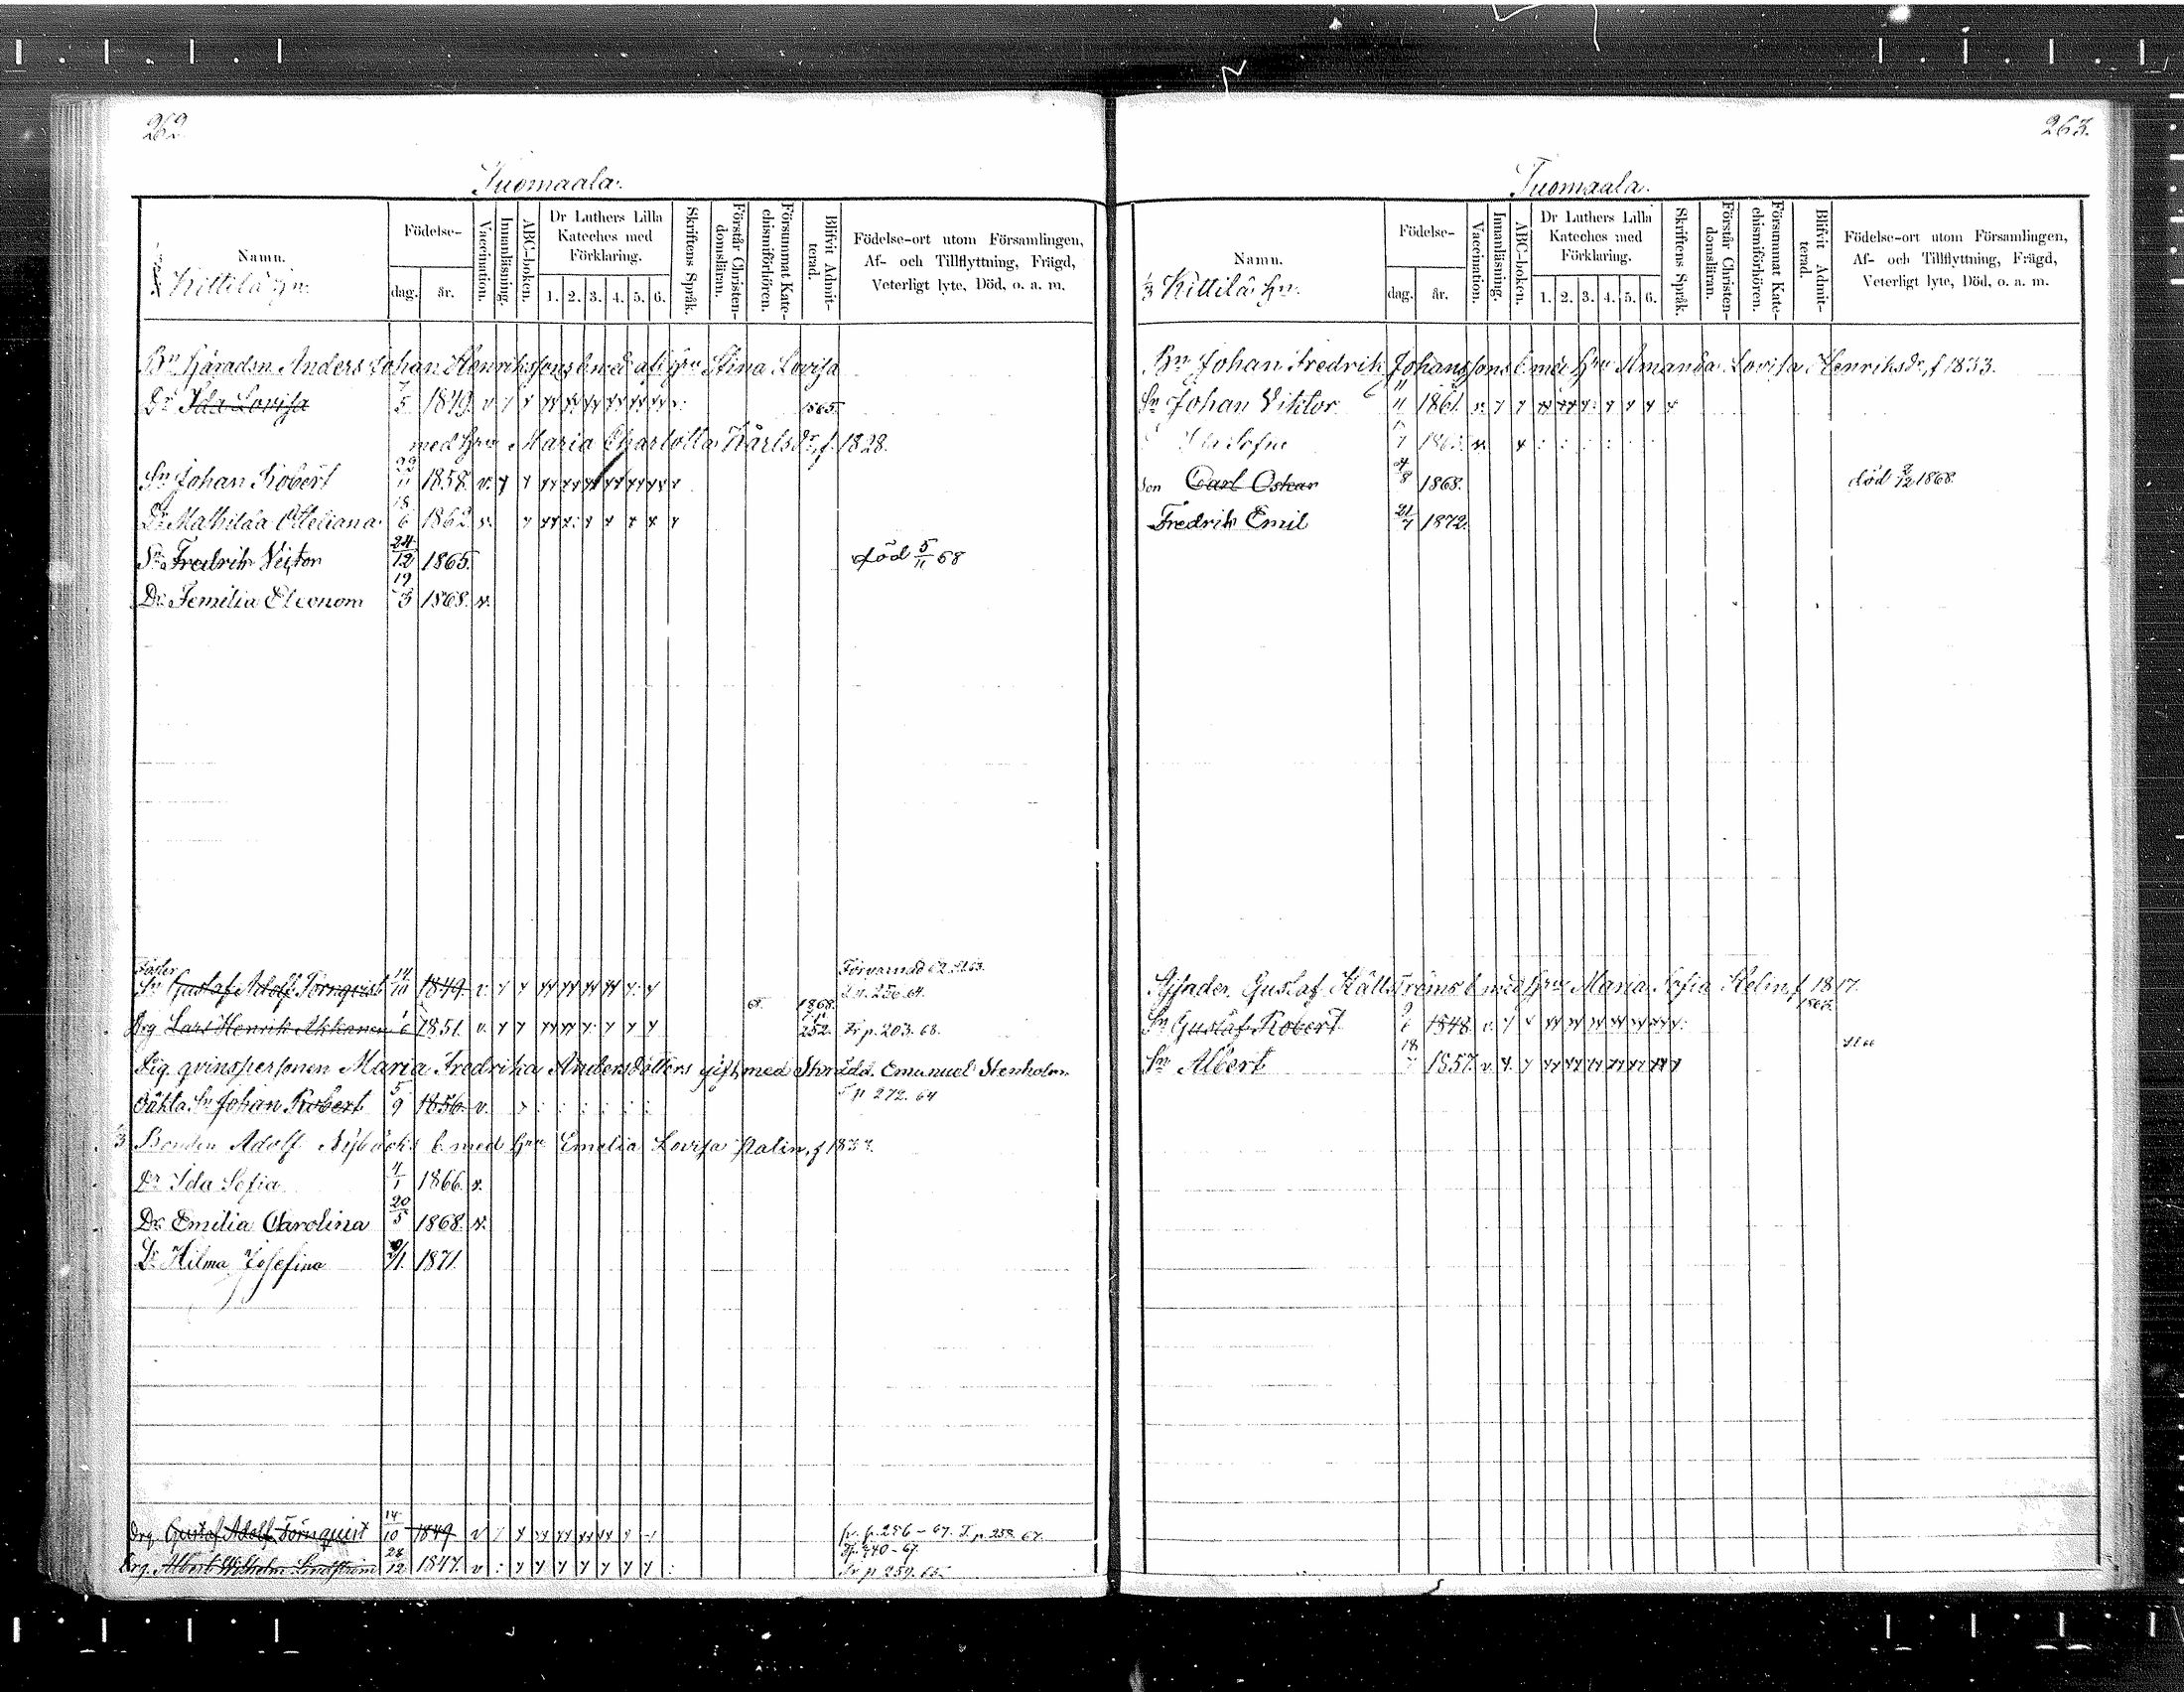 262.
Tuomaala.
Namn.
Kittilä hn.
Födelse-
dag.
år.
Vaccination.
Innanläsning.
ABC-boken.
Dr Luthers Lilla Kateches med Förklaring.
1. 2. 3. 4. 5. 6.
Skriftens Språk.
Förstår Christen-domsläran.
Försummat Kate-chismiförhören.
Blifvit Admit-terad.
Födelse-ort utom Församlingen,
Af- och Tillflyttning, Frägd,
Veterligt lyte, Död, o. a. m.
Bn Häradsn Anders Johan Henrikssons b. med afl. hru Stina Lovisa
Dr Ida Lovisa 7/5 1849. v. 1865.
med hru Maria Charlotta Karlsdr, f. 1828.
Sn Johan Robert 22/11 1858. v.
Dr Mathilda Otteliana 18/6 1862 v.
Sn Fredrik Victor 24/12 1865. död 5/11 68
Dr Femilia Eleonora 19/3 1868. v.
Foster Förvarnad
Sn Gustaf Adolf Törnqvist 14/10 1849. v. T. p. 256. 64.
Drg Lars Henrik Ahkanen 1851. v. 1868. T. p. 252. Fr p. 203. 68.
Lig. qvinspersonen Maria Fredrika Andersdotters gift med Skrädd. Emanuel Stenholm
Oäkta Sn Johan Robert 5/9 1856. v. T p 272. 64
1/3 Bonden Adolf Nybäcks b. med hru Emelia Lovisa Palin, f 183
Dr Ida Sofia 4/1 1866. v.
Dr Emilia Carolina 20/5 1868. v.
Dr Hilma Josefina 1871.
Drg Gustaf Adolf Törnquist 14/10 1849 v fr. p. 256 - 67. T. p. 258 67.
Drg. Albert Wilhelm Lindström 28/12 1847. v Fr p 259. 65.
263.
Tuomaala.
Namn.
1/3 Kittilä hn.
Födelse-
dag.
år.
Vaccination.
Innanläsning.
ABC-boken.
Dr Luthers Lilla Kateches med Förklaring.
1. 2. 3. 4. 5. 6.
Skriftens Språk.
Förstår Christen-domsläran.
Försummat Kate-chismiförhören.
Blifvit Admit-terad.
Födelse-ort utom Församlingen,
Af- och Tillflyttning, Frägd,
Veterligt lyte, Död, o. a. m.
Bn Johan Fredrik Johanssons b. med hru Amanda Lovisa Henriksdr, f 1833.
Sn Johan Viktor 1861. v.
Sofia
son Carl Oskar 4/8 1868. död 1868.
Fredrik Emil 21/7 1872.
Gustaf Källströms b. med hru Maria Sofia Helin, f. 1817.
Sn Gustaf Robert 1848. v. 1865.
Sn Albert 18/7 1857. v.